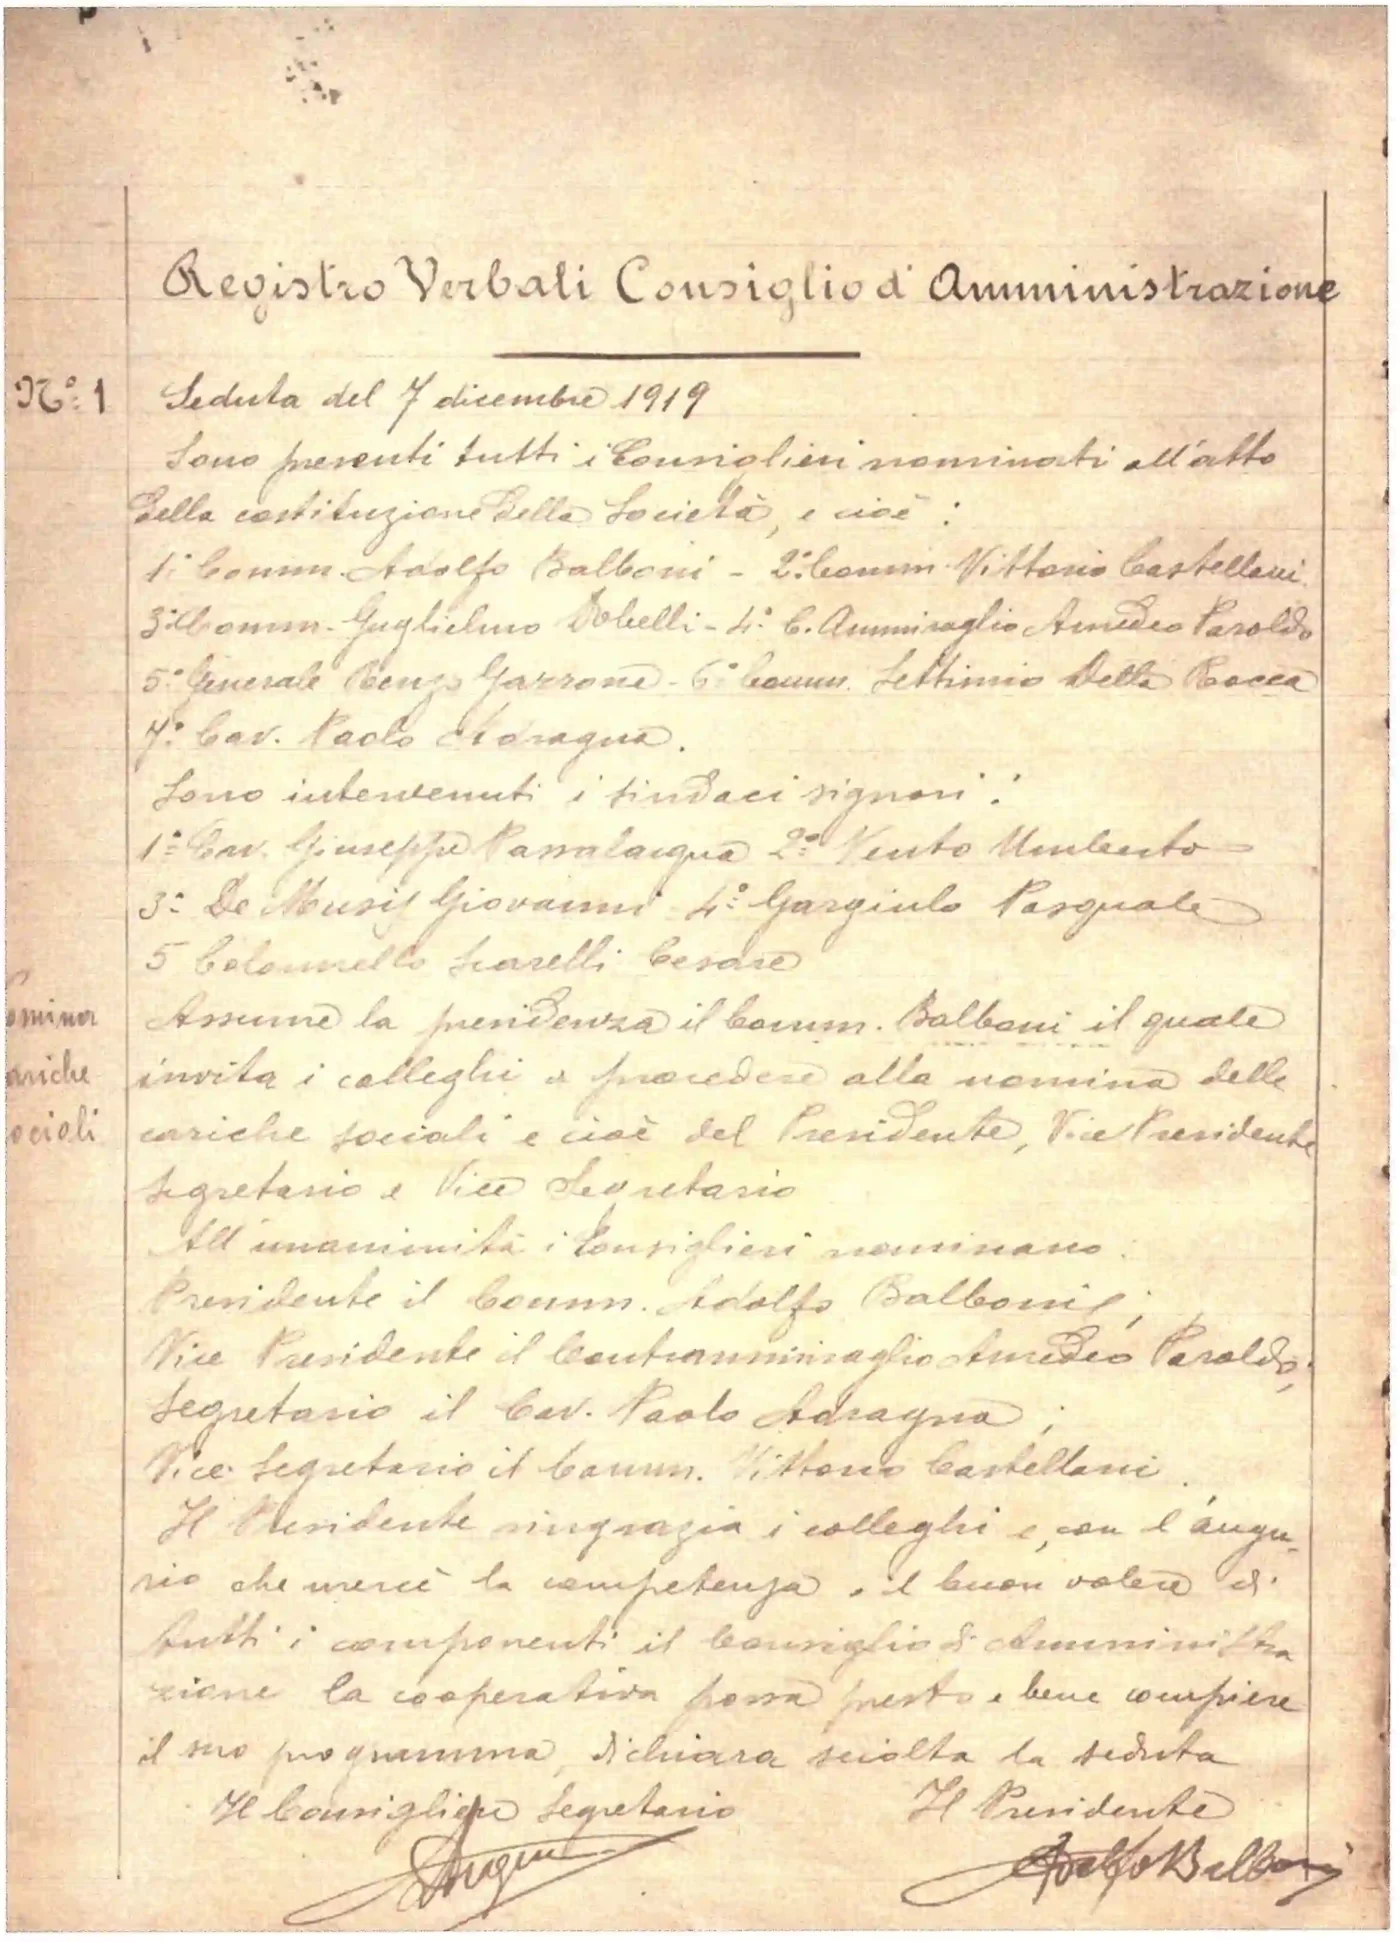 Registro Verbali Consiglio di Amministrazione
N.º 1
Seduta del 7 dicembre 1919
Sono presenti tutti i Consiglieri nominati all'atto
della costituzione della Società, e cioè :
1º Comm. Adolfo Balboni - 2º Comm. Vittorio Castellani
3º Comm. Guglielmo Dobelli - 4º C. Ammiraglio Amedeo Paroldo
5º Generale Renzo Garrone - 6º Comm. Settimio Della Rocca
7º Cav. Paolo Adragna.
Sono intervenuti i sindaci signori :
1º Cav. Giuseppe Passalacqua 2º Vento Umberto -
3º De Musis Giovanni 4º Gargiulo Pasquale
5 Colonnello Scarelli Cesare
omina
ariche
ociali
Assume la presidenza il Comm. Balboni il quale
invita i colleghi a procedere alla nomina delle
cariche sociali e cioè del Presidente, Vice Presidente
Segretario e Vice Segretario
All'unanimità i Consiglieri nominano:
Presidente il Comm. Adolfo Balboni ;
Vice Presidente il Contrammiraglio Amedeo Paroldo;
Segretario il Cav. Paolo Adragna ;
Vice Segretario il Comm. Vittorio Castellani.
Il Presidente ringrazia i colleghi e, con l'augu-
rio che mercè la competenza e il buon volere di
tutti i componenti il Consiglio di Amministra
zione la cooperativa possa presto e bene compiere
il suo programma, dichiara sciolta la seduta
Il Consigliere Segretario Il Presidente
Adolfo Balboni